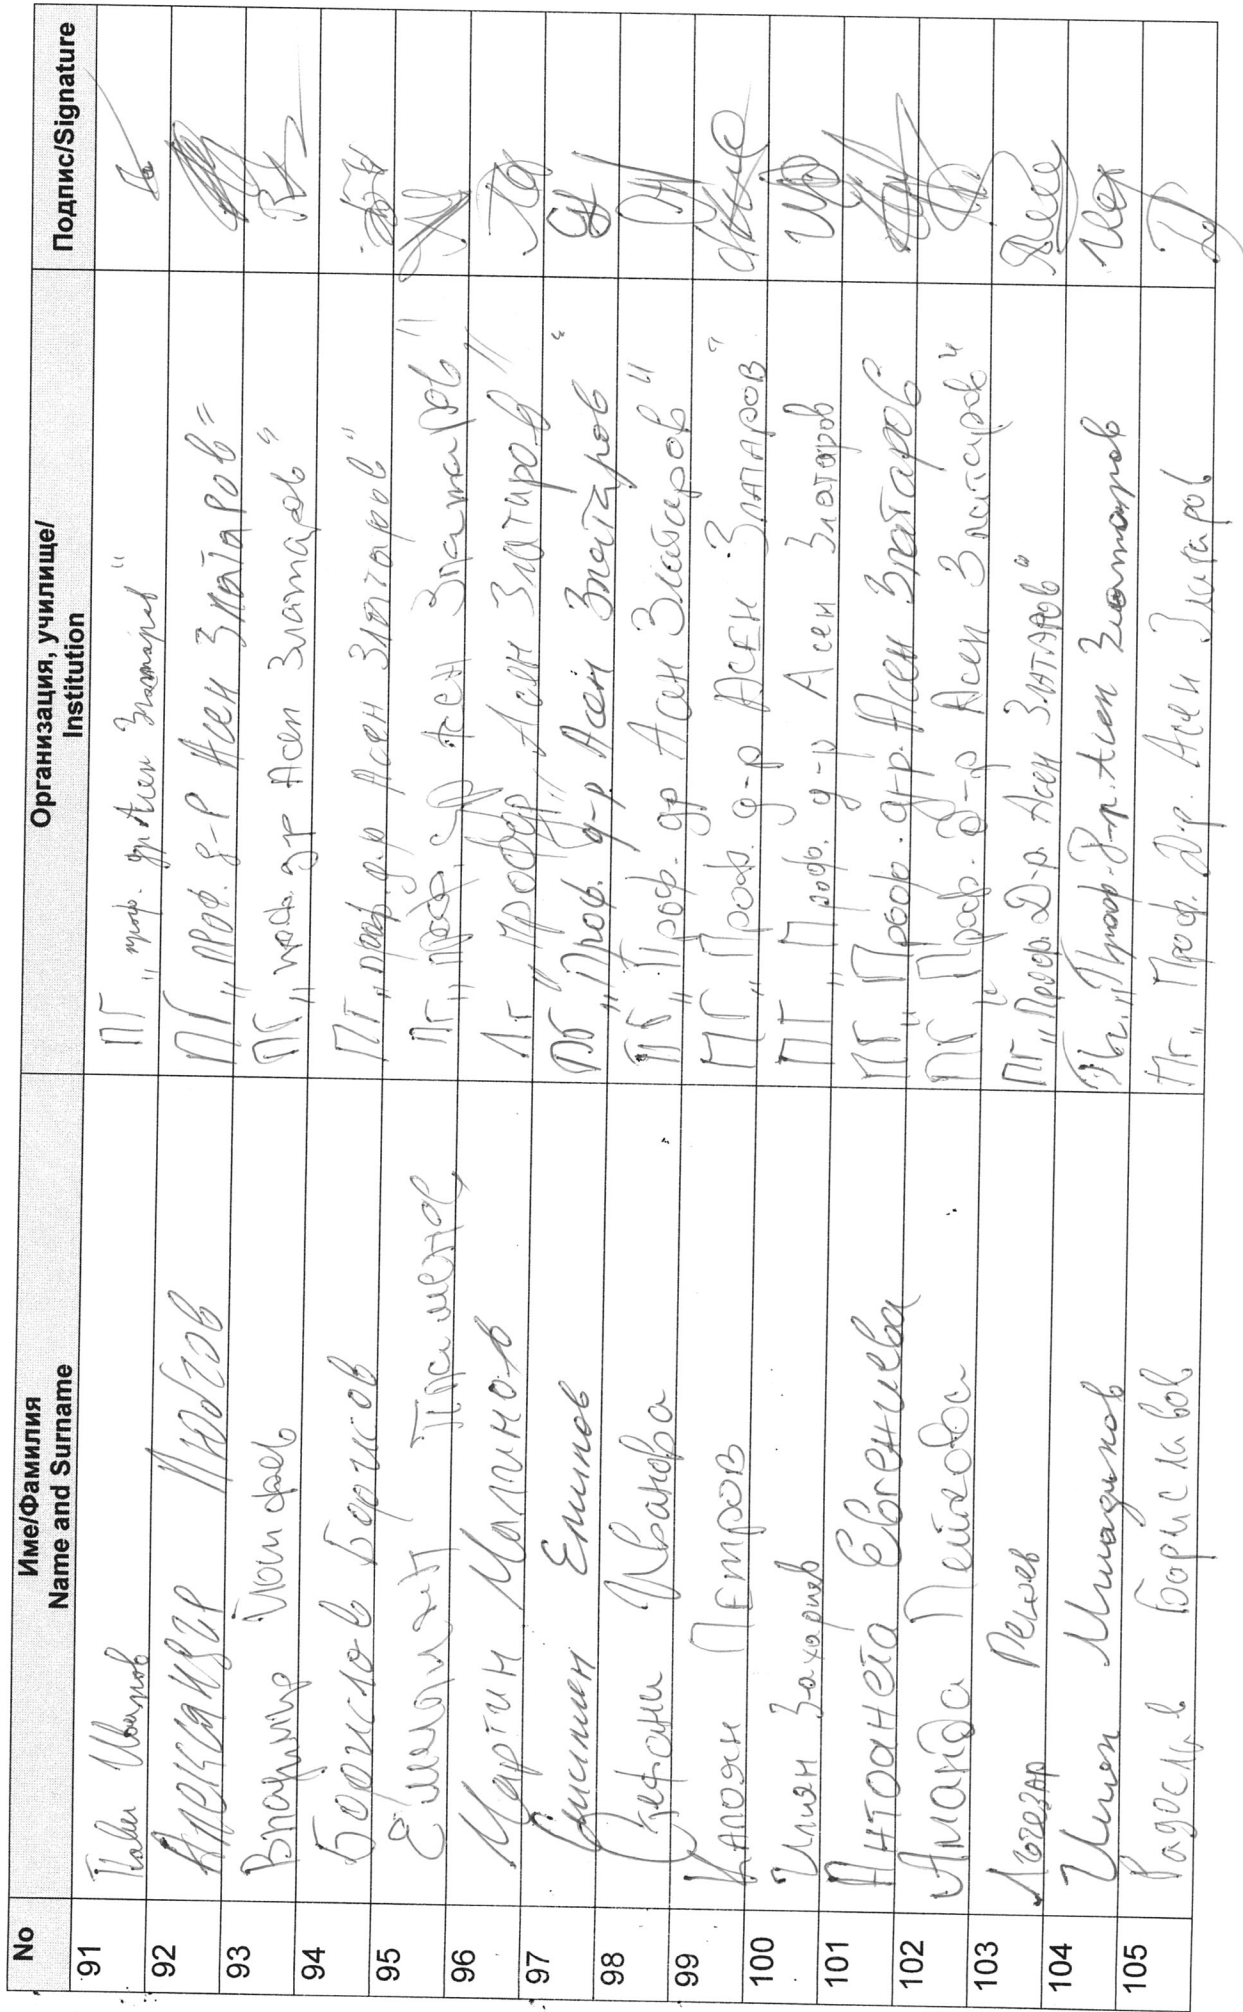 No Име/Фамилия Организация, училище/ Подпис/Signature
Name and Surname Institution
91 Павел ПГ „проф. др Асен Златаров“
92 Александър Любчов ПГ „проф. д-р Асен Златаров“
93 Владимир Йосифов ПГ „проф. др Асен Златаров“
94 Борислав Борисов ПГ „проф. д-р Асен Златаров“
95 Емилиян Пламенов ПГ „проф. др Асен Златаров“
96 Мартин Малинов ПГ „проф. др Асен Златаров“
97 Симеон Емилов ПГ „Проф. д-р Асен Златаров“
98 Стефани Иванова ПГ „Проф. др Асен Златаров“
99 Калоян Петров ПГ „Проф. д-р Асен Златаров“
100 Илиян Захариев ПГ „Проф. д-р Асен Златаров
101 Антоанета Евгениева ПГ „Проф. д-р. Асен Златаров
102 Аманда Пейкова ПГ „Проф. д-р Асен Златаров“
103 Лъчезар Релев ПГ „Проф. Д-р. Асен Златаров“
104 Илиян Младенов ПГ „Проф. д-р. Асен Златаров
105 Радослав Бориславов Пг „Проф. Д-р. Асен Златаров